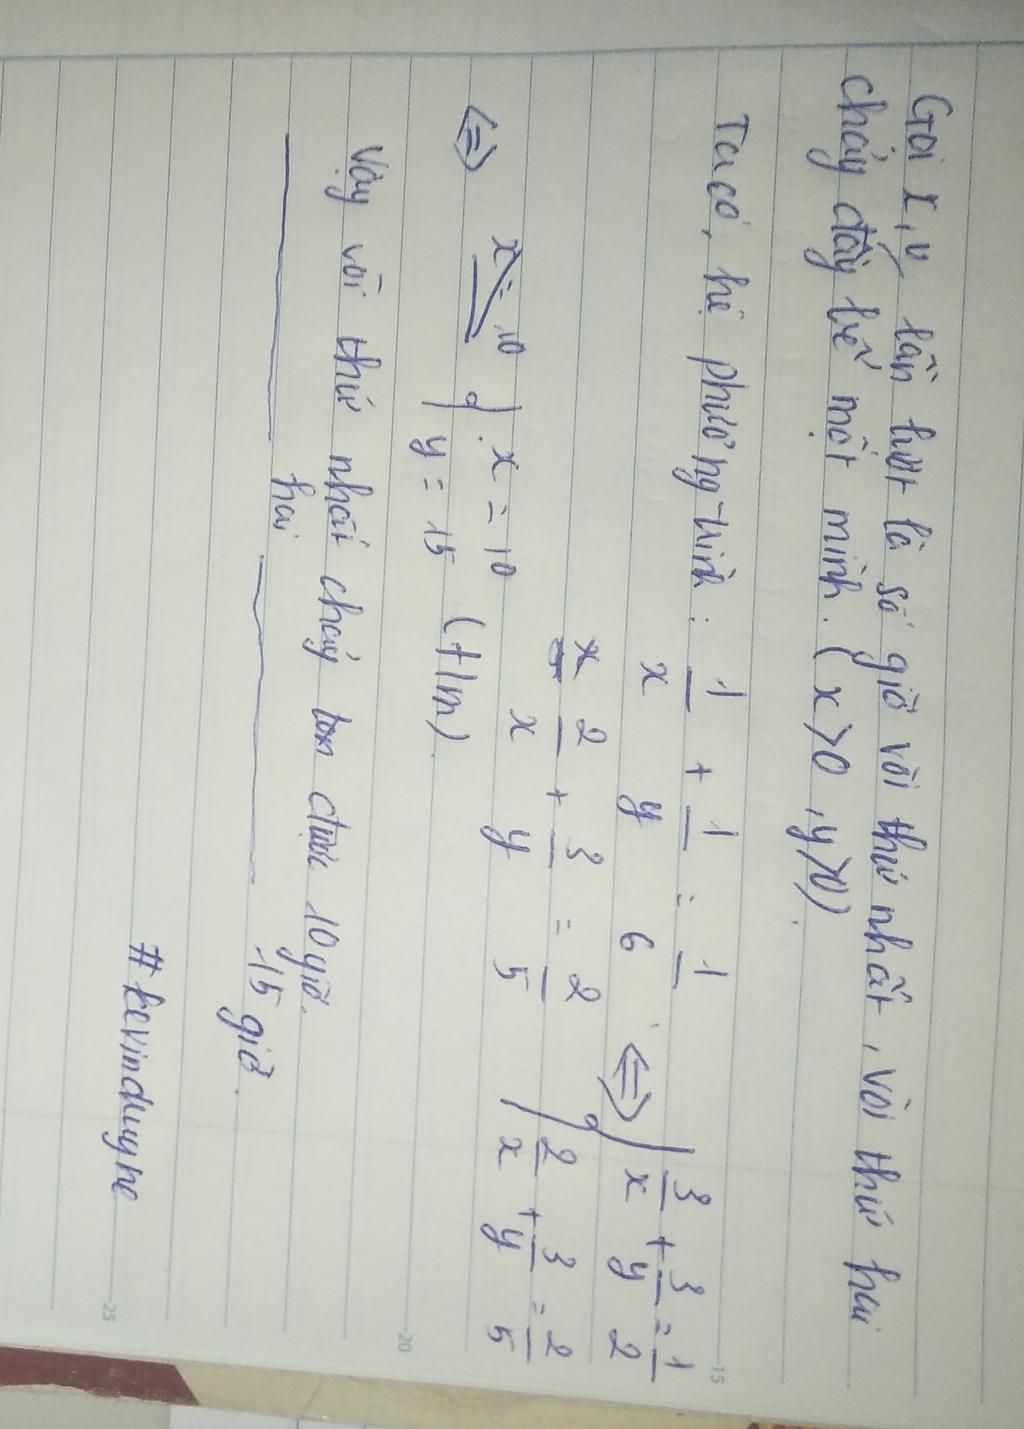 Gọi x, y lần lượt là số giờ vòi thứ nhất, vòi thứ hai
chảy đầy bể một mình. (x>0, y>0).
Ta có, hệ phương trình: 1/x + 1/y = 1/6 <=> { 3/x + 3/y = 1/2
2/x + 3/y = 2/5 2/x + 3/y = 2/5
<=> { x = 10
y = 15 (t/m)
Vậy vòi thứ nhất chảy trong được 10 giờ.
hai 15 giờ.
# kevinduyne
15
20
25